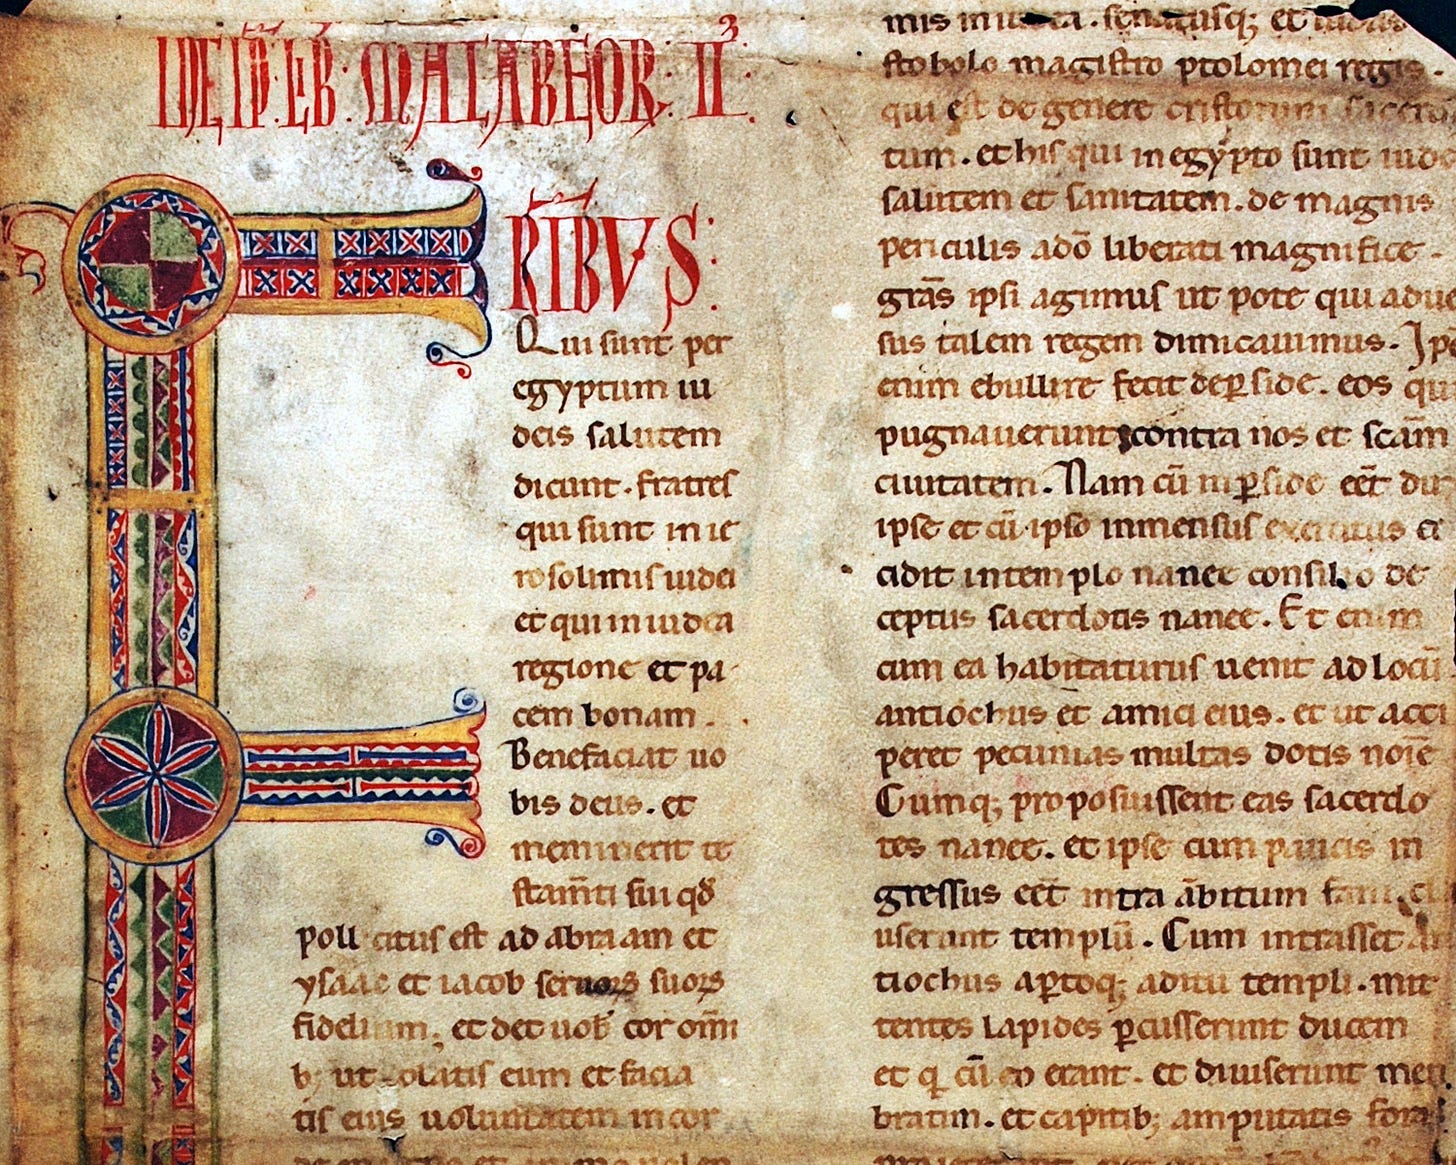 INCIP LIB MACHABEOR II
FRIBVS
Qui sunt per
egyptum iu
deis salutem
dicunt. fratres
qui sunt in ie
rosolimis iudei
et qui in iudea
regione et pa
cem bonam.
Benefaciat uo
bis deus. et
meminerit te
stam̄ti sui qđ
pollicitus est ad abraam et
ysaac et iacob seruoꝝ suoꝝ
fidelium. et det uob̄ cor om̄i
b; ut colatis eum et facia
tis eius uoluntatem in cor
mis in senatusq; et iudas
stobolo magistro ptolomei regis.
qui est de genere cristorum sacerdo
tum. et his qui in egypto sunt iude
salutem et sanitatem. de magnis
periculis adō liberati magnifice.
grās ipsi agimus ut pote qui aduer
sus talem regem dimicauimus. Ipse
enim ebullire fecit deꝑside. eos qui
pugnauerunt contra nos et sc̄am
ciuitatem. Nam cū in ꝑside eēt dux
ipse et cū ipso inmensus exercitus ce
cidit in templo nanee consilio de
ceptus sacerdotis nanee. Et enim
cum ea habitaturus uenit ad locū
antiochus et amici eius. et ut acci
peret pecunias multas dotis noīe
Cumq; proposuissent eas sacerdo
tes nanee. et ipse cum paucis in
gressus eēt intra ābitum fani. cl
userunt templū. Cum intrasset an
tiochus aꝑtoq; aditu templi. mit
tentes lapides ꝑcusserunt ducem
et q̄ cū eo erant. et diuiserunt mem
bratim. et capitib; amputatis foras